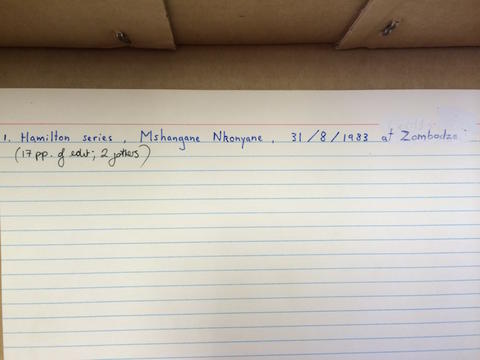 1. Hamilton series, Mshangane Nkonyane, 31/8/1983 at Zombodze
(17 pp. of edit; 2 jotters)